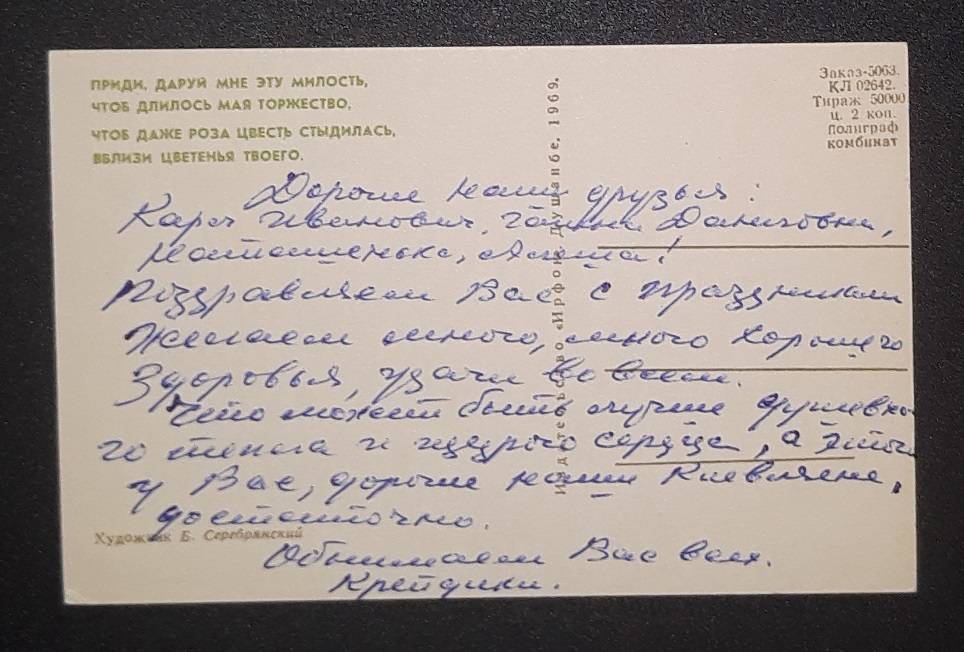 ПРИДИ, ДАРУЙ МНЕ ЭТУ МИЛОСТЬ,
ЧТОБ ДЛИЛОСЬ МАЯ ТОРЖЕСТВО,
ЧТОБ ДАЖЕ РОЗА ЦВЕСТЬ СТЫДИЛАСЬ,
ВБЛИЗИ ЦВЕТЕНЬЯ ТВОЕГО.
Заказ-5063.
КЛ 02642.
Тираж 50000
ц. 2 коп.
Полиграф
комбинат
Издательство «Ирфон» Душанбе, 1969.
Дорогие наши друзья:
Карл Иванович, Даниловна,
Наташенька, Алёша!
Поздравляем Вас с праздниками
Желаем много, много хорошего
Здоровья, удачи во всем.
Что может быть лучше душевно-
го тепла и щедрого сердца, а этого
у Вас, дорогие наши Киевляне,
достаточно.
Художник Б. Серебрянский
Обнимаем Вас всех.
Крейдики.